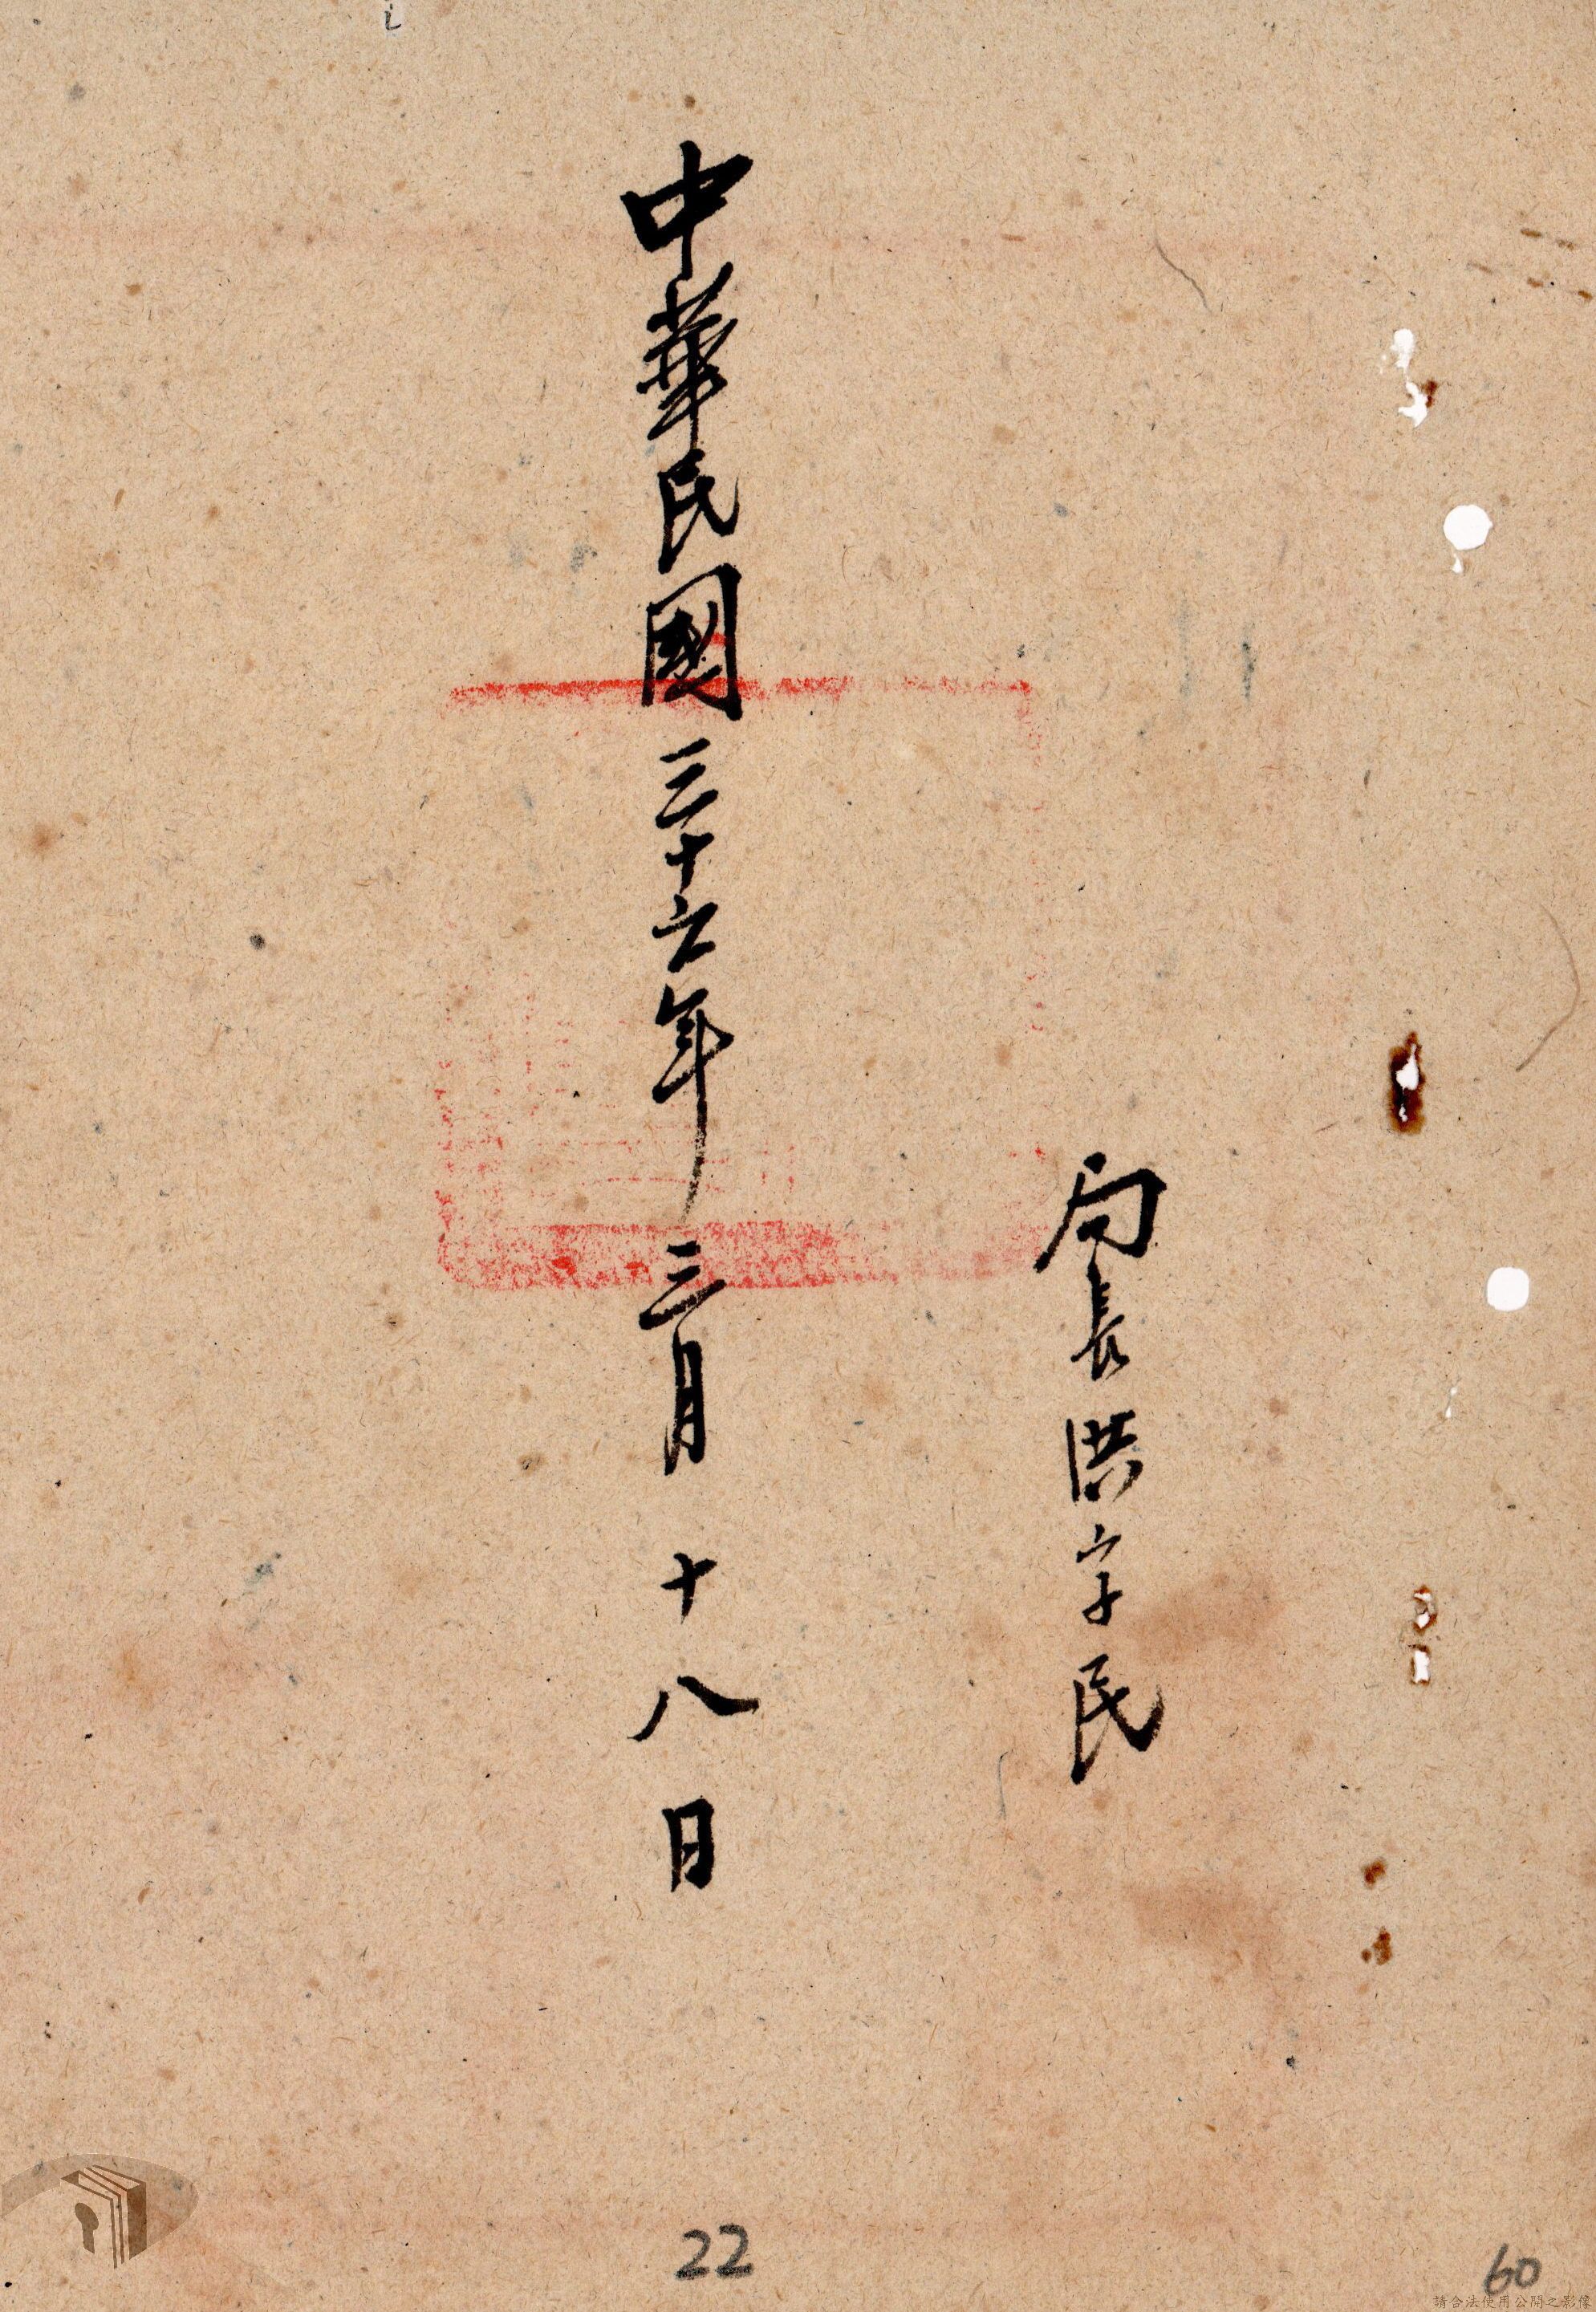 局長洪字民
中華民國三十六年三月十八日
22
60
請合法使用公開之影像